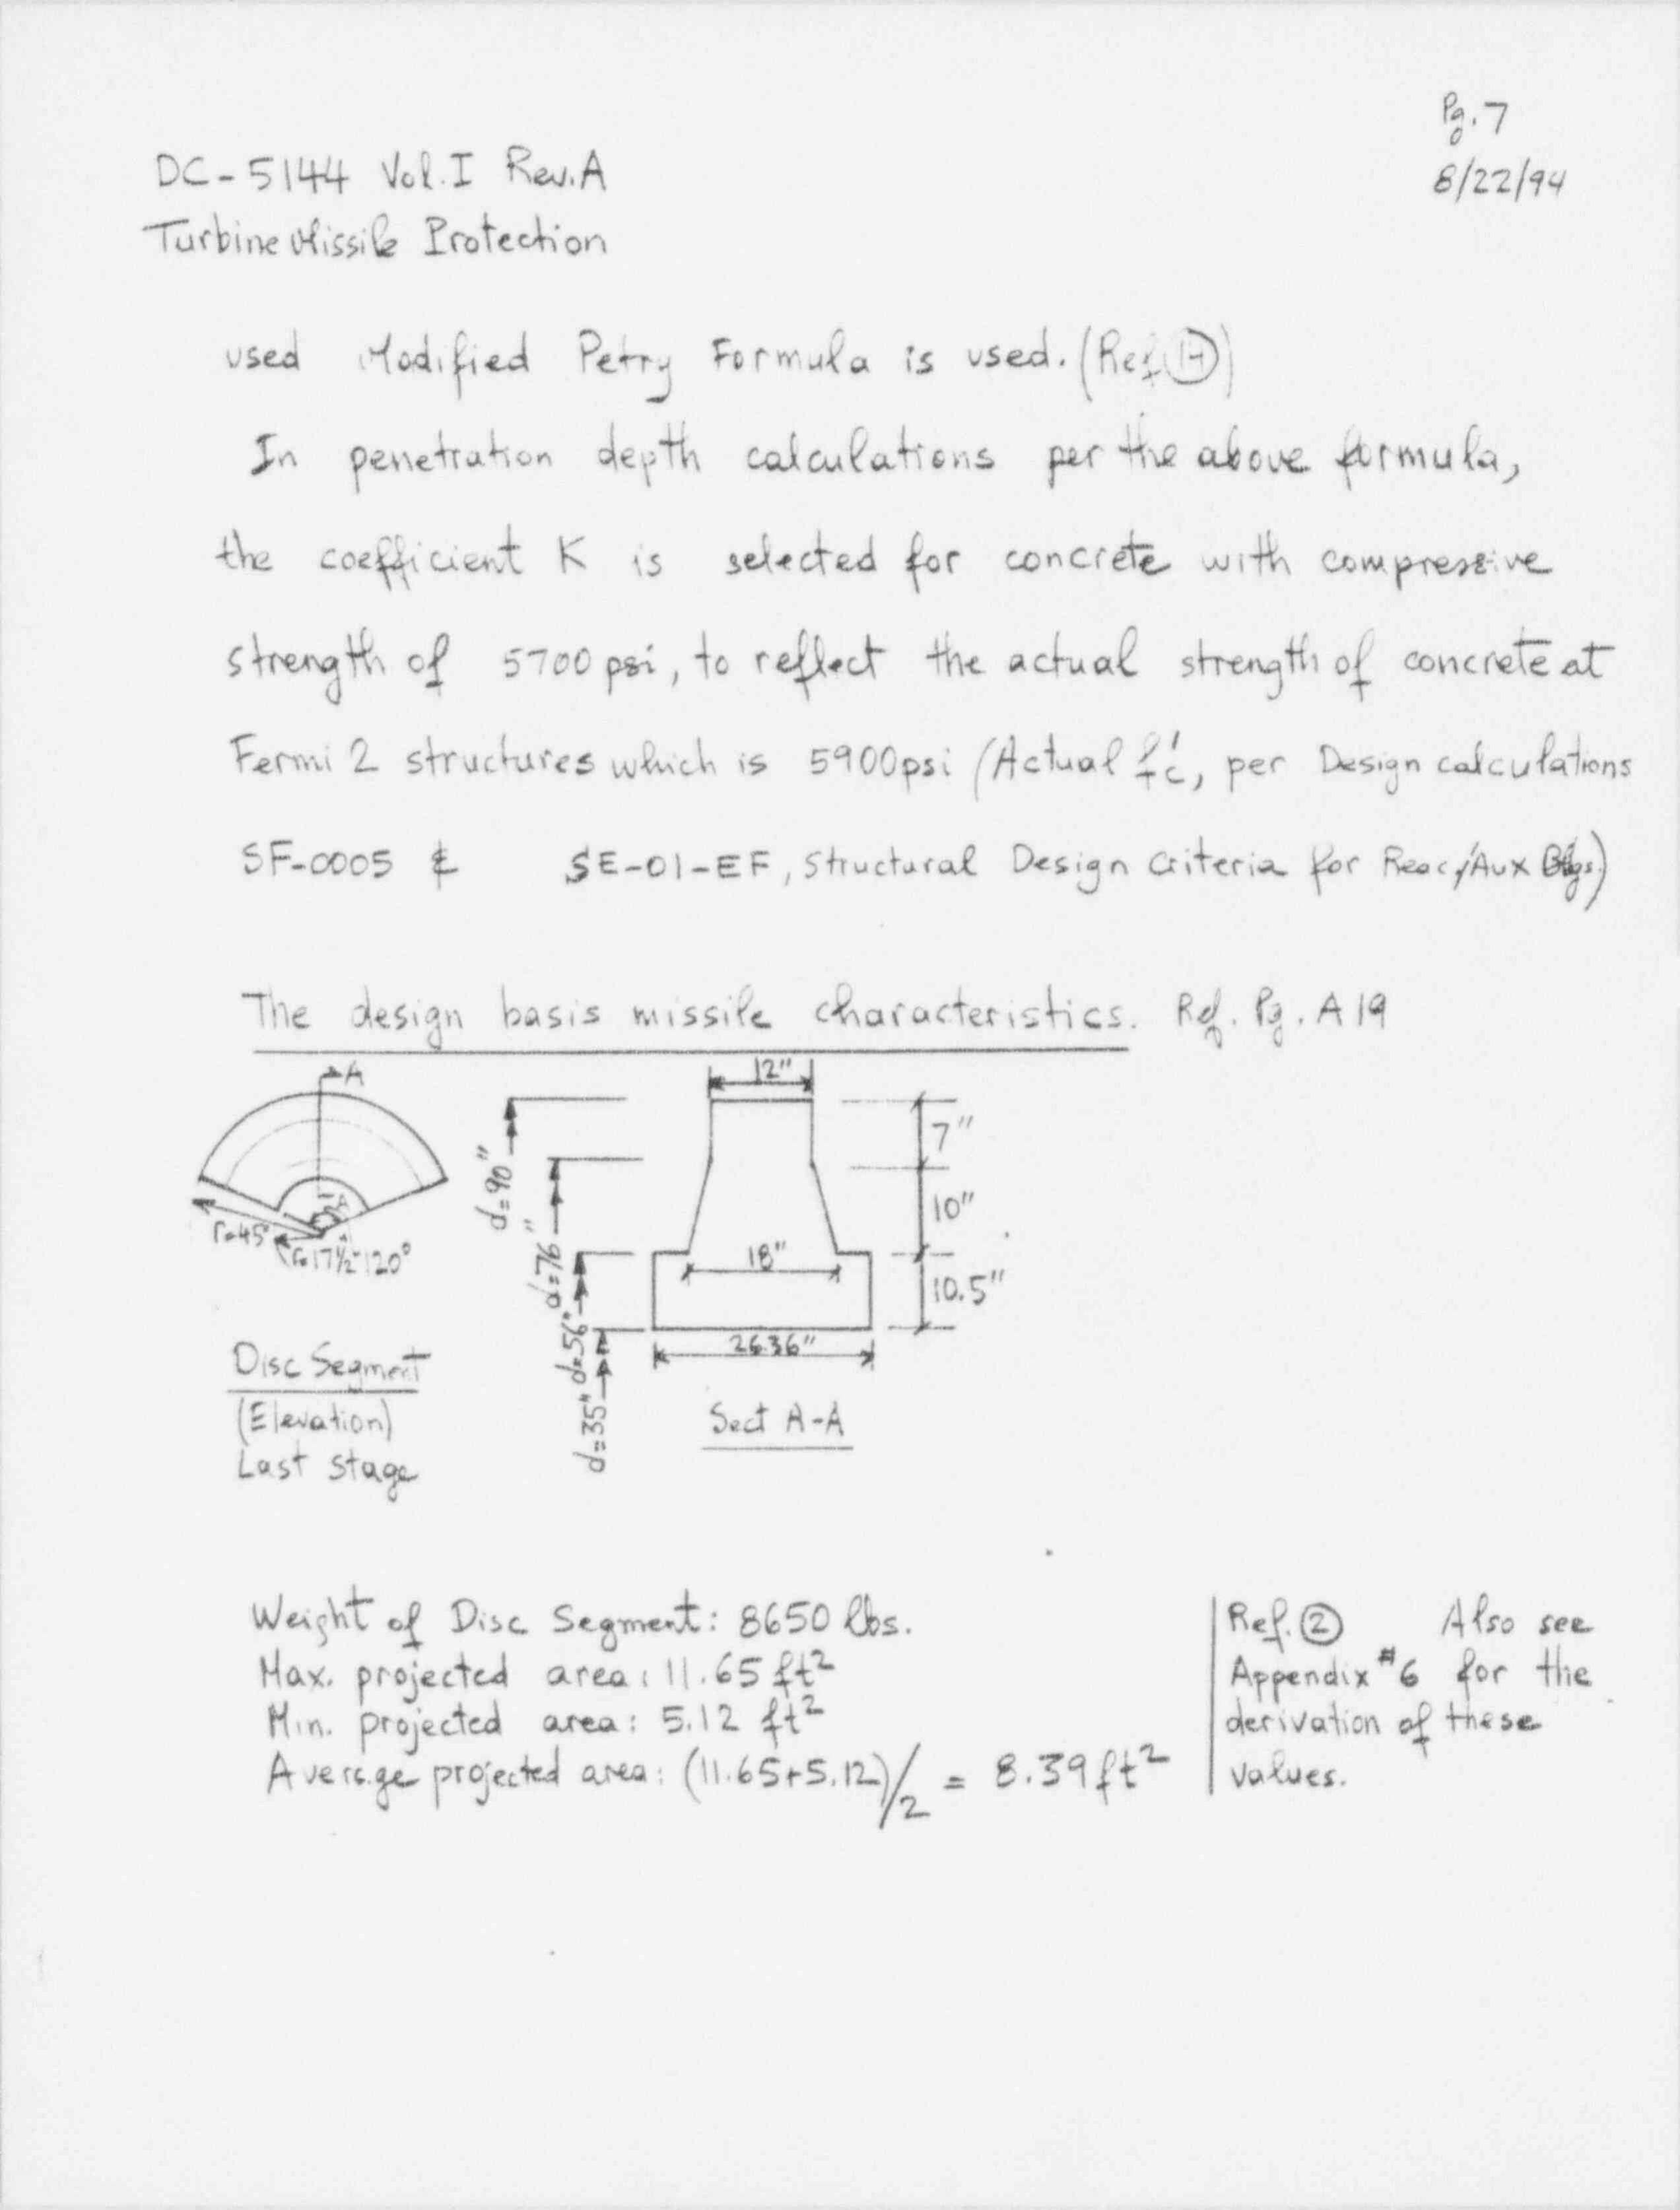 Pg. 7
8/22/94
DC-5144 Vol. I Rev. A
Turbine Missile Protection
used Modified Petry Formula is used. (Ref
In penetration depth calculations per the above formula,
the coefficient K is selected for concrete with compressive
strength of 5700 psi, to reflect the actual strength of concrete at
Fermi 2 structures which is 5900psi (Actual f'c, per Design calculations
SF-0005 & SE-01-EF, Structural Design Criteria for Reac/Aux Blgs.)
The design basis missile characteristics. Ref. Pg. A19
A
A
r=45"
r=17½"
120°
Disc Segment
(Elevation)
Last Stage
d=90"
d=76"
d=56"
d=35"
12"
18"
26.36"
7"
10"
10.5"
Sect A-A
Weight of Disc Segment: 8650 lbs.
Max. projected area: 11.65 ft²
Min. projected area: 5.12 ft²
Average projected area: (11.65+5.12)/2 = 8.39 ft²
Ref. ② Also see
Appendix #6 for the
derivation of these
values.